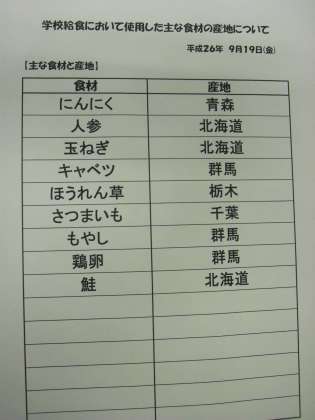 学校給食において使用した主な食材の産地について
平成26年 9月19日(金)
【主な食材と産地】
食材 産地
にんにく 青森
人参 北海道
玉ねぎ 北海道
キャベツ 群馬
ほうれん草 栃木
さつまいも 千葉
もやし 群馬
鶏卵 群馬
鮭 北海道